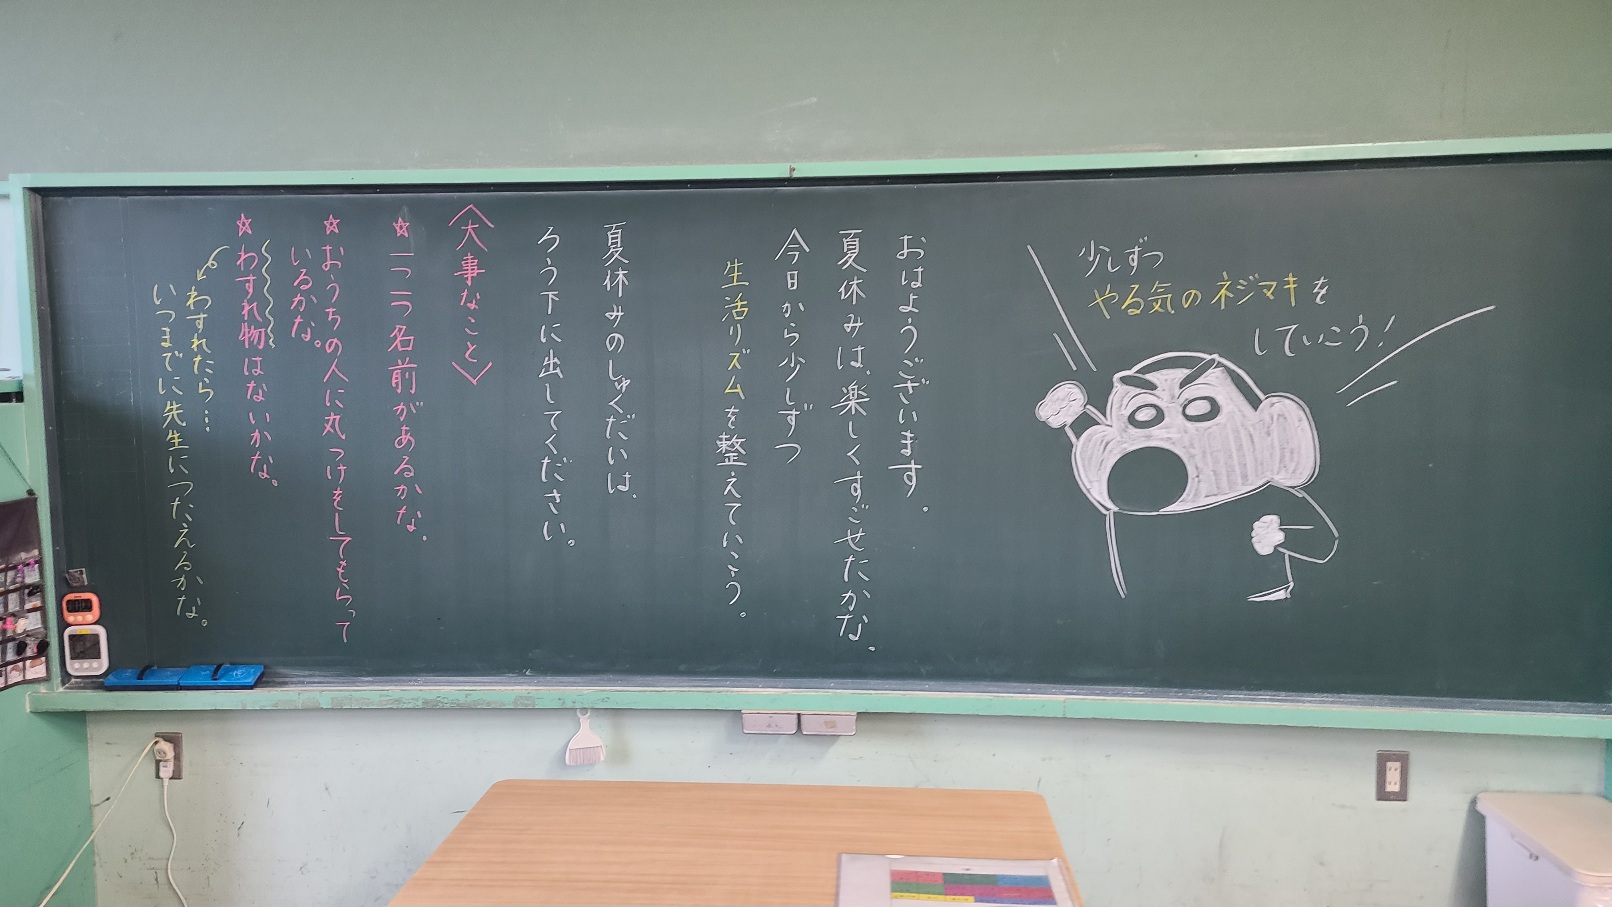 少しずつ
やる気のネジマキを
していこう!
おはようございます。
夏休みは、楽しくすごせたかな。
今日から少しずつ
生活リズムを整えていこう。
夏休みのしゅくだいは、
ろう下に出してください。
〈大事なこと〉
☆一つ一つ名前があるかな。
☆おうちの人に丸つけをしてもらって
いるかな。
☆わすれ物はないかな。
わすれたら…
いつまでに先生につたえるかな。